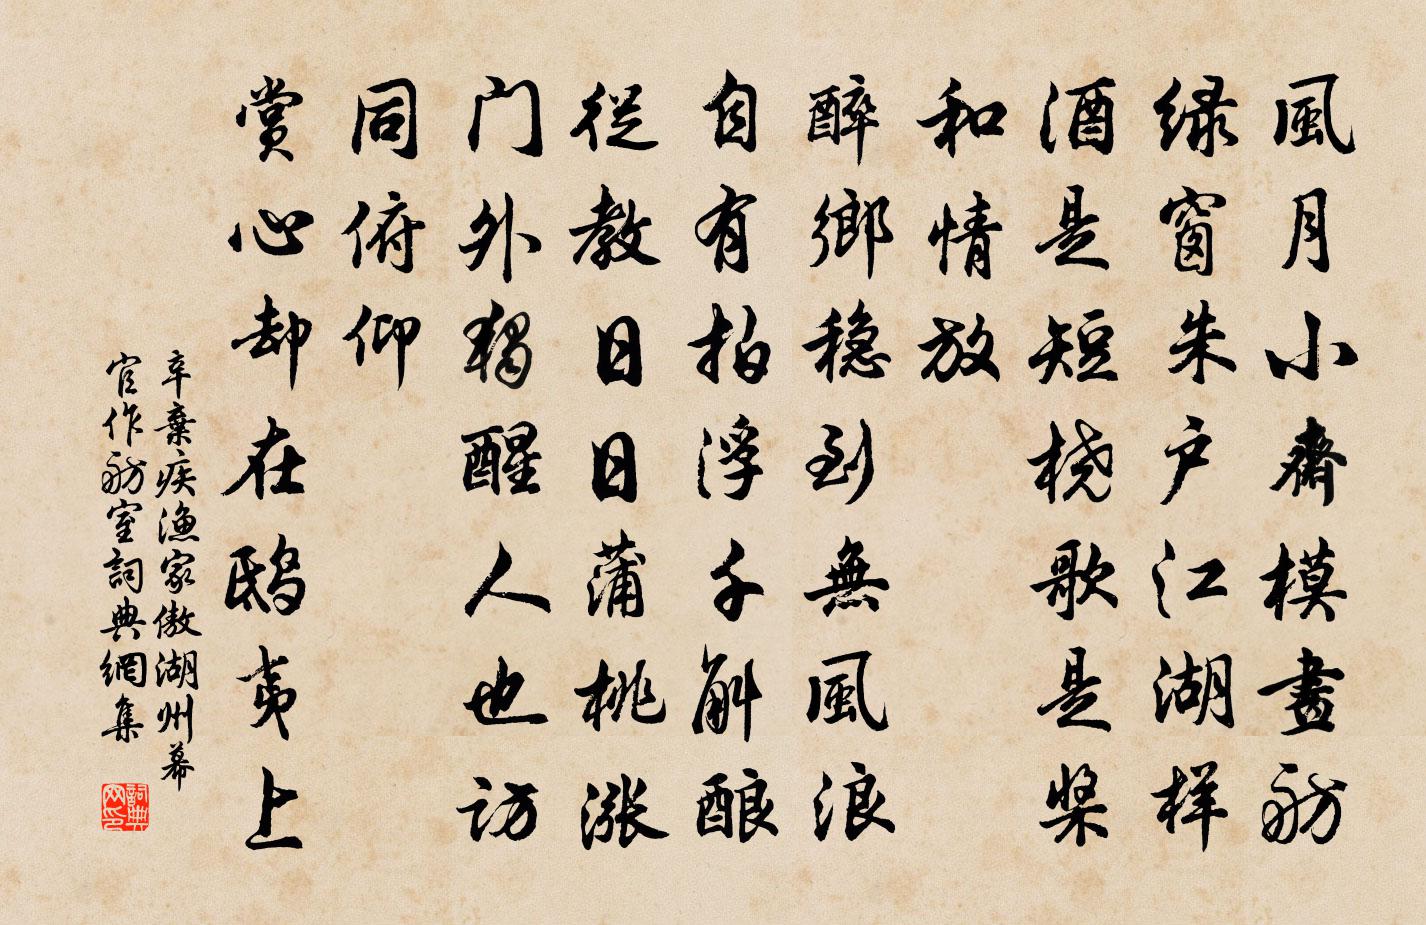 風月小齋模畫舫
绿窗朱户江湖样
酒是短桡歌是桨
和情放
醉鄉稳到無風浪
自有拍浮千斛酿
從教日日蒲桃涨
门外獨醒人也访
同俯仰
赏心却在鸱夷上
辛棄疾渔家傲湖州幕
官作舫室詞典網集
詞典网印